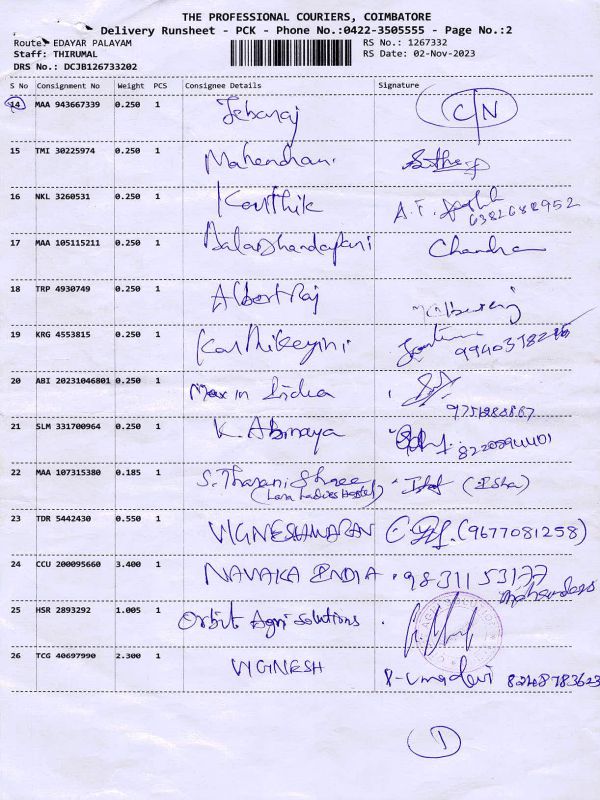 THE PROFESSIONAL COURIERS, COIMBATORE
Delivery Runsheet - PCK - Phone No.:0422-3505555 - Page No.:2
Route: EDAYAR PALAYAM RS No.: 1267332
Staff: THIRUMAL RS Date: 02-Nov-2023
DRS No.: DCJB126733202
S No Consignment No Weight PCS Consignee Details Signature
14 MAA 943667339 0.250 1 Jebaraj C/N
15 TMI 30225974 0.250 1 Mahendran
16 NKL 3260531 0.250 1 Karthik A.F. 6382688952
17 MAA 105115211 0.250 1 Baladhandapani Chandra
18 TRP 4930749 0.250 1 Albert Raj
19 KRG 4553815 0.250 1 Karthikeyini
20 ABI 20231046801 0.250 1 Max in India
21 SLM 331700964 0.250 1 K. Abinaya
22 MAA 107315380 0.185 1 S. Tharani Shree (Isha)
(Lara Ladies Hostel)
23 TDR 5442430 0.550 1 VIGNESHWARAN (9677081258)
24 CCU 200095660 3.400 1 NAVAKA INDIA 9831153177
25 HSR 2893292 1.005 1 Orbit Agri solutions
26 TCG 40697990 2.300 1 VIGNESH R-Umadevi 8248783623
1